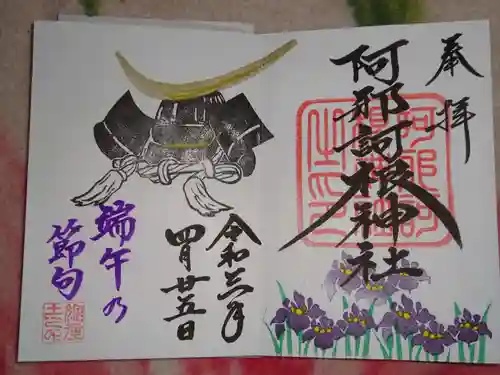 奉拝
阿邪訶根神社
令和六年
四月廿五日
端午乃
節句